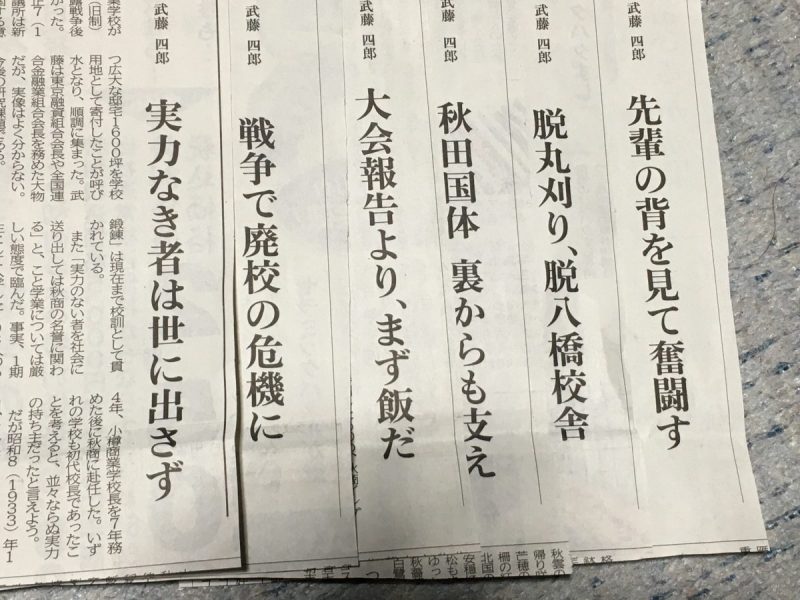 武藤 四郎
先輩の背を見て奮闘す
武藤 四郎
脱丸刈り、脱八橋校舎
武藤 四郎
秋田国体 裏からも支え
武藤 四郎
大会報告より、まず飯だ
武藤 四郎
戦争で廃校の危機に
武藤 四郎
実力なき者は世に出さず
業学校が
(旧制)
露戦争後
かった。
正7(1
議所は新
つ広大な邸宅1600坪を学校
用地として寄付したことが呼び
水となり、順調に集まった。武
藤は東京融資組合会長や全国連
合金融業組合会長を務めた大物
だが、実像はよく分からない。
今後の研究課題である。
鍛錬」は現在まで校訓として貫
かれている。
また「実力のない者を社会に
送り出しては秋商の名誉に関わ
る」と、こと学業については厳
しい態度で臨んだ。事実、1期
4年、小樽商業学校長を7年務
めた後に秋商に赴任した。いず
れの学校も初代校長であったこ
とを考えると、並々ならぬ実力
の持ち主だったと言えよう。
だが昭和8(1933)年1